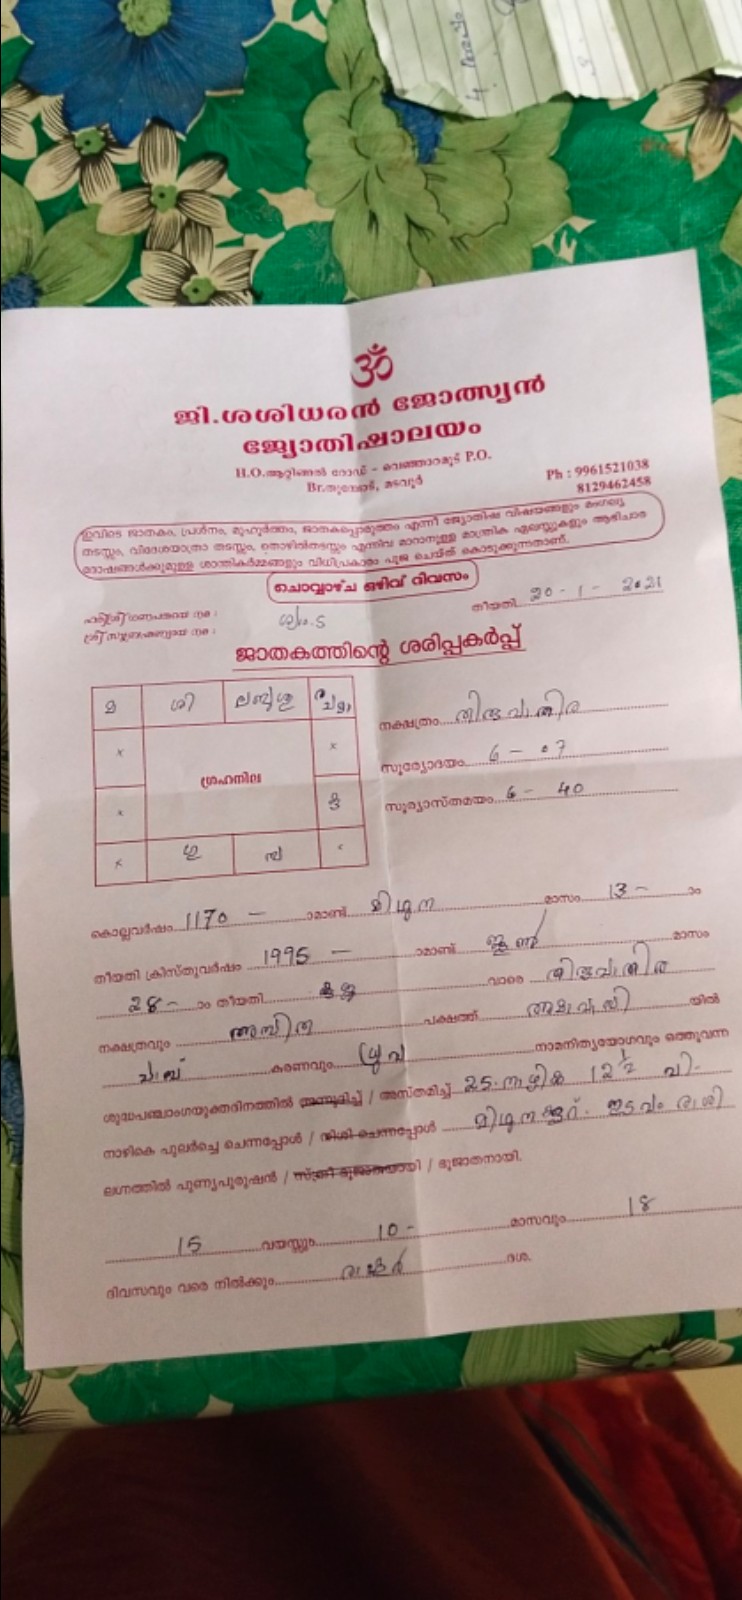 ॐ
ജി.ശശിധരൻ ജോത്സ്യൻ
ജ്യോതിഷാലയം
H.O.ആറ്റിങ്ങൽ റോഡ് - വെഞ്ഞാറമൂട് P.O.
മടവൂർ
Ph : 9961521038
8129462458
ഇവിടെ ജാതകം, പ്രശ്നം, മുഹൂർത്തം, ജാതകപ്പൊരുത്തം എന്നീ ജ്യോതിഷ വിഷയങ്ങളും മംഗല്യ
തടസ്സം, വിദേശയാത്രാ തടസ്സം, തൊഴിൽതടസ്സം എന്നിവ മാറാനുള്ള മാന്ത്രിക ഏലസ്സുകളും ആഭിചാര
ദോഷങ്ങൾക്കുമുള്ള ശാന്തികർമ്മങ്ങളും വിധിപ്രകാരം പൂജ ചെയ്ത് കൊടുക്കുന്നതാണ്.
ചൊവ്വാഴ്ച ഒഴിവ് ദിവസം
ഹരിഃശ്രീ ഗണപതയെ നമഃ
തീയതി 20 - 1 - 2021
ശ്രീ സുബ്രഹ്മണ്യായ നമഃ
ജാതകത്തിന്റെ ശരിപ്പകർപ്പ്
മ ശി
x x
ഗ്രഹനില
x
x
നക്ഷത്രം തിരുവാതിര
സൂര്യോദയം 6 - 07
സൂര്യാസ്തമയം 6 - 40
കൊല്ലവർഷം 1170 - ാമാണ്ട് മിഥുന മാസം 13 - ാം
തീയതി ക്രിസ്തുവർഷം 1995 - ാമാണ്ട് ജൂൺ മാസം
28 - ാം തീയതി വാരെ തിരുവാതിര
നക്ഷത്രവും അസിത പക്ഷത്ത് അമാവാസി യിൽ
കരണവും ധ്രുവ നാമനിത്യയോഗവും ഒത്തുവന്ന
ശുദ്ധപഞ്ചാംഗയുക്തദിനത്തിൽ / അസ്തമിച്ച് 25 നാഴിക 12 ½ വി.
നാഴികെ പുലർച്ചെ ചെന്നപ്പോൾ / നിശി ചെന്നപ്പോൾ ഇടവം രാശി
ലഗ്നത്തിൽ പുണ്യപുരുഷൻ / ഭൂജാതനായി.
15 വയസ്സും 10 - മാസവും 18
ദിവസവും വരെ നിൽക്കും രാഹുർ ദശ.